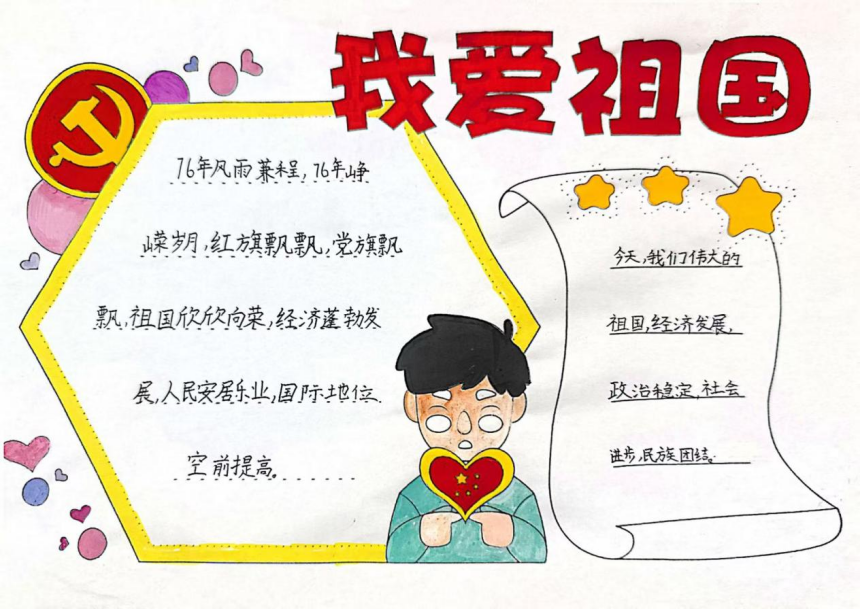 我爱祖国
76年风雨兼程,76年峥
嵘岁月,红旗飘飘,党旗飘
飘,祖国欣欣向荣,经济蓬勃发
展,人民安居乐业,国际地位
空前提高。
今天,我们伟大的
祖国,经济发展,
政治稳定,社会
进步,民族团结。